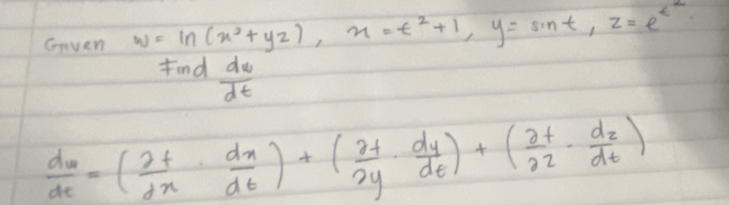 Given w = ln(x³ + yz), x = t² + 1, y = sin t, z = e^t²
Find dw/dt
dw/dt = (∂f/∂x · dx/dt) + (∂f/∂y · dy/dt) + (∂f/∂z · dz/dt)